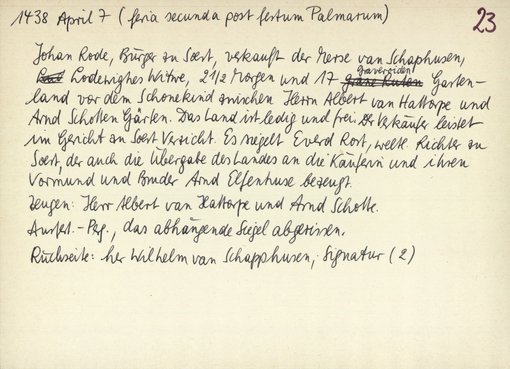 1438 April 7 (feria secunda post festum Palmarum)
23
Johan Rode, Bürger zu Soest, verkauft der Nerse van Schaphusen,
Lodewighes Witwe, 2 1/2 Morgen und 17 graveroiden Garten-
land vor dem Schonekind zwischen Herrn Albert van Hattorpe und
Arnd Schotten Gärten. Das Land ist ledig und frei. Der Verkäufer leistet
im Gericht zu Soest Verzicht. Es siegelt Everd Rost, weltl. Richter zu
Soest, der auch die Übergabe des Landes an die Käuferin und ihren
Vormund und Bruder Arnd Elfenhuse bezeugt.
Zeugen: Herr Albert van Hattorpe und Arnd Schotte.
Ausfet. - Pkg., das abhängende Siegel abgerissen.
Rückseite: her Wilhelm van Schapphusen; Signatur (2)